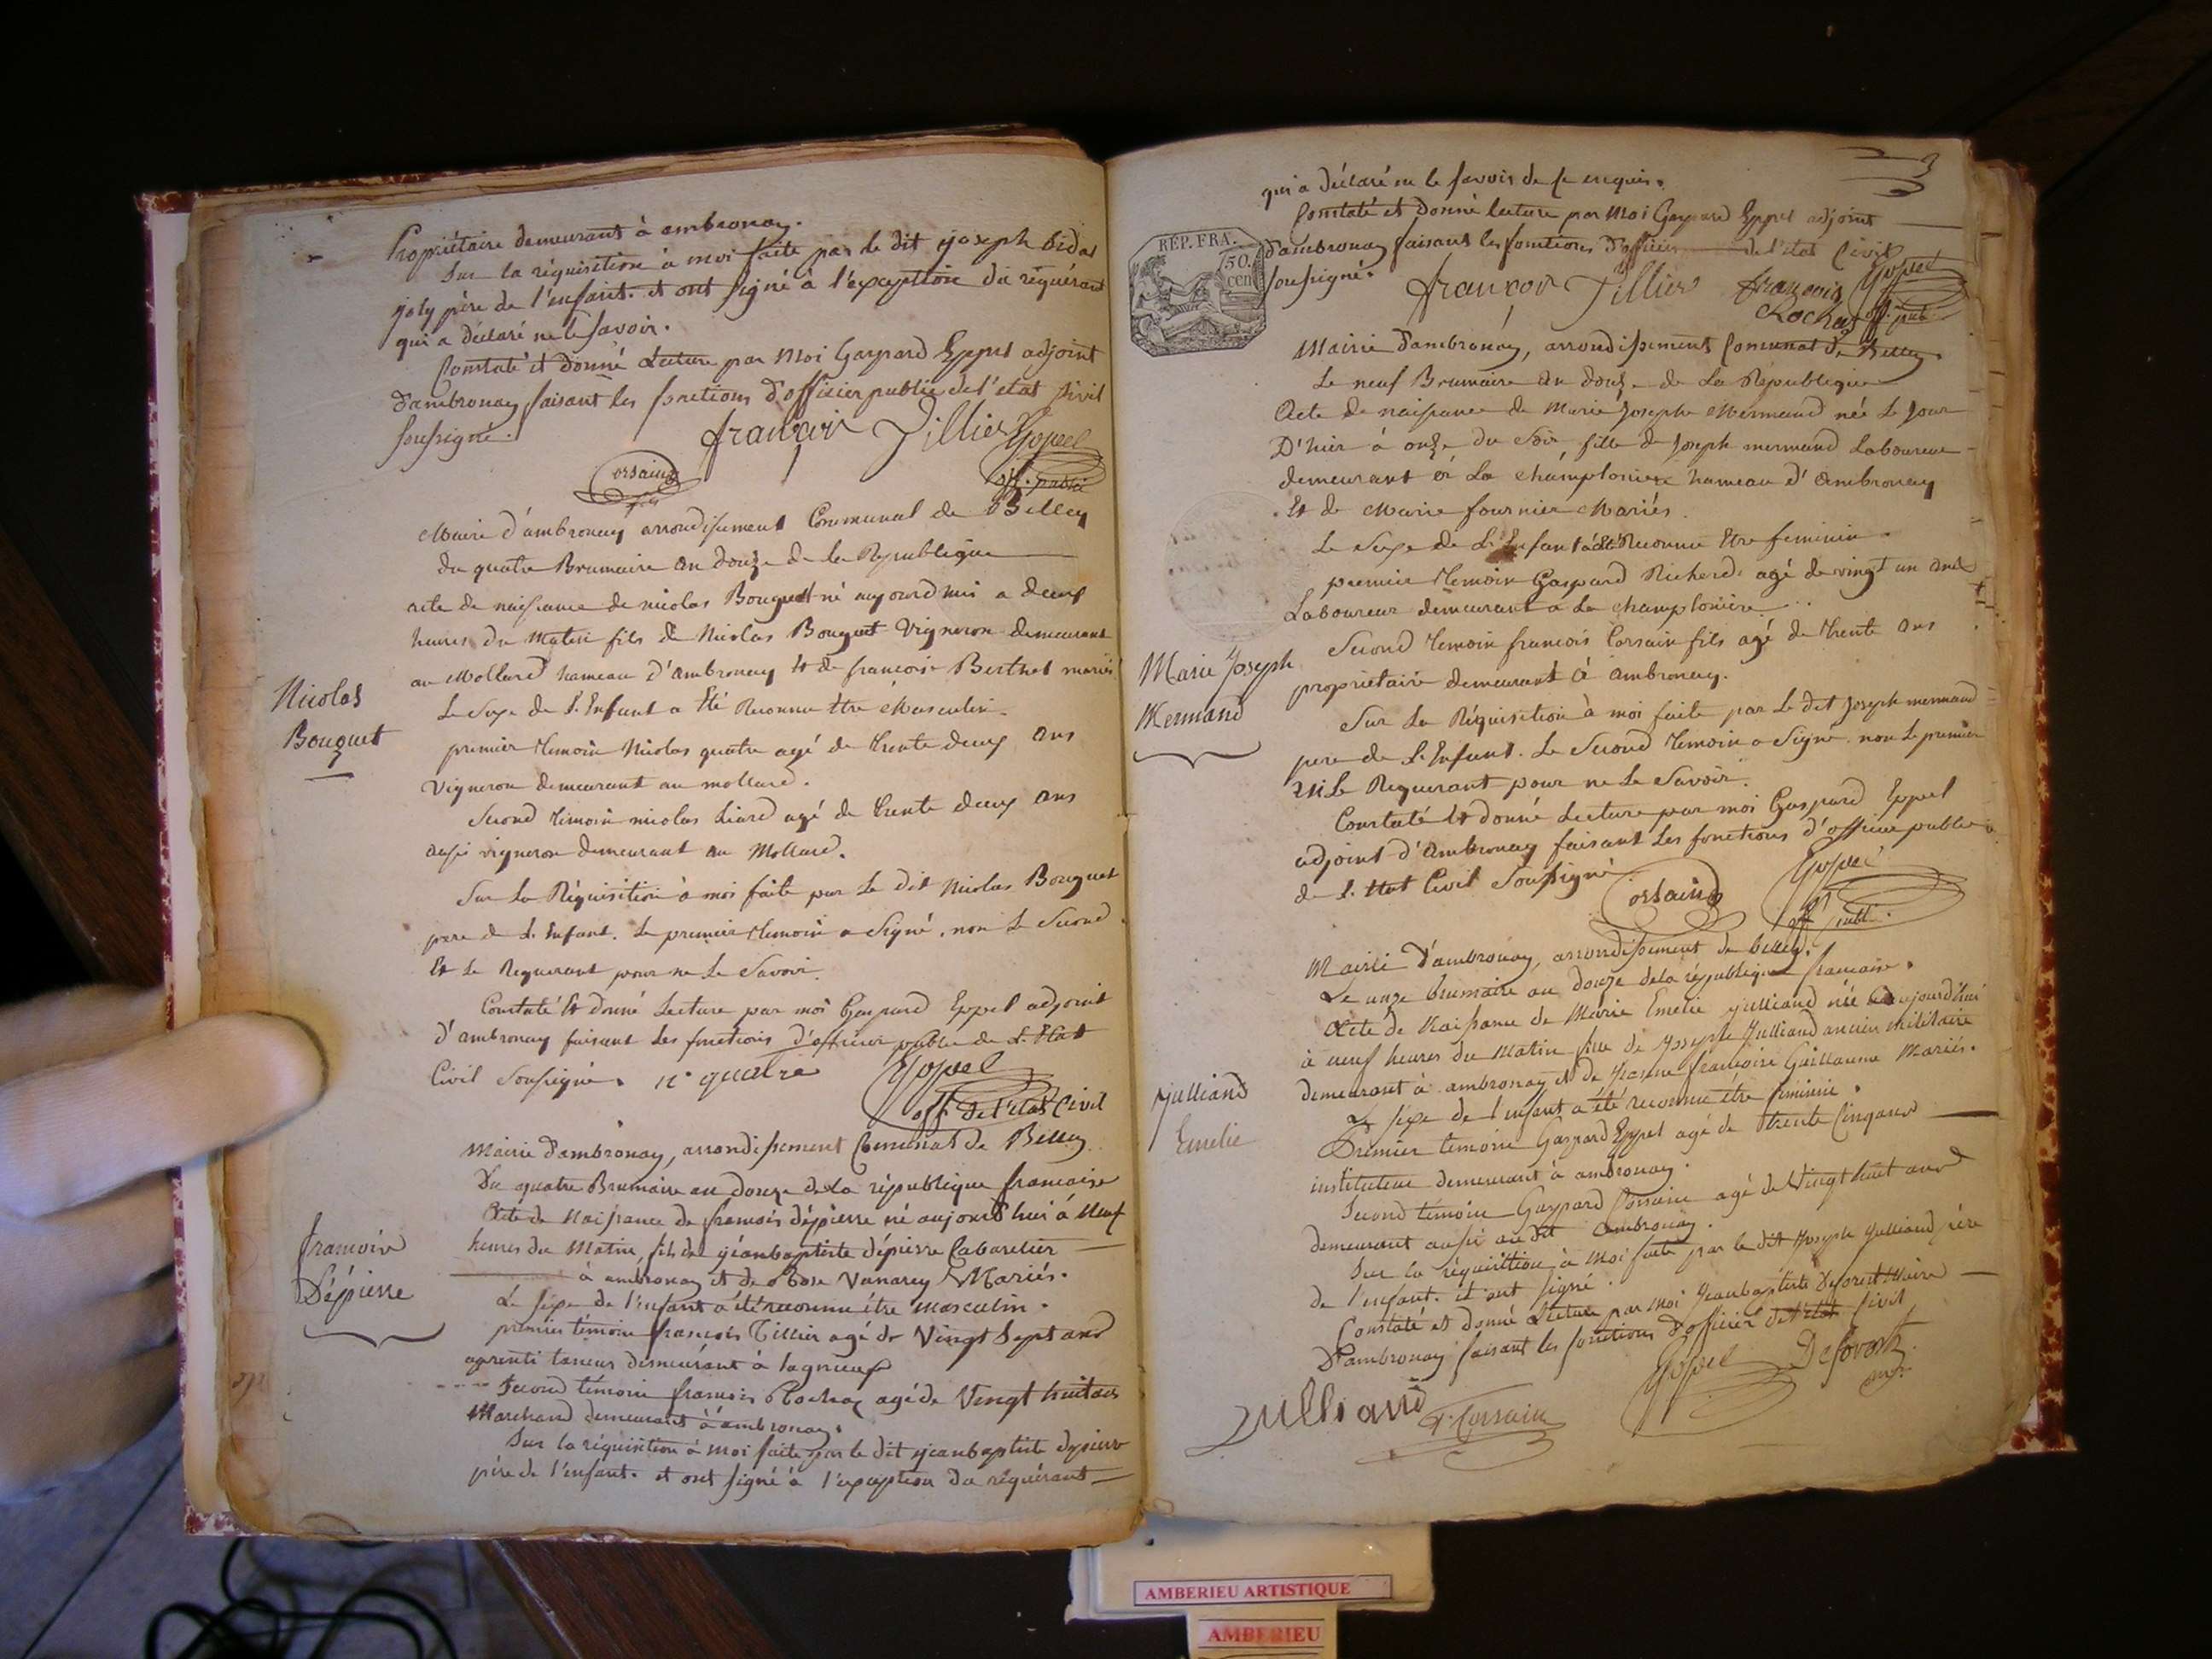 Propriétaire demeurant à ambronay.
Sur la réquisition à moi faite par le dit joseph bidal
joly père de l'enfant. et ont signé à l'exception du réquérant
qui a déclaré ne le savoir.
Constaté et donné Lecture par moi Gaspard Eppel adjoint
d'ambronay faisant les fonctions d'officier public de l'etat civil
soussigné.
françois Tillier Eppel
Corsain fils
off. public
Mairie d'ambronay arrondissement Communal de Belley
du quatre Brumaire an douze de la Republique
acte de naissance de nicolas Bouquet né aujourdhui a deux
heures du Matin fils de Nicolas Bouquet Vigneron demeurant
au Mollard hameau d'ambronay Et de francoise Berthet mariés
Le Sexe de L'Enfant a Eté Reconnu Etre Masculin.
Nicolas
Bouquet
premier temoin Nicolas quatre agé de trente deux ans
Vigneron demeurant au mollard.
Second temoin nicolas Liard agé de trente deux ans
aussi vigneron demeurant au Mollard.
Sur La Réquisition à moi faite par Le dit Nicolas Bouquet
pere de L'Enfant. Le premier temoin a Signé, non Le Second
Et Le Requerant pour ne Le Savoir.
Constaté Et donné Lecture par moi Gaspard Eppel adjoint
d'ambronay faisant Les fonctions d'officier public de L'Etat
Civil Soussigné. n quatre
Eppel
off de l'état Civil
Mairie d'ambronay, arrondissement Communal de Belley
Du quatre Brumaire an douze de la république francaise
Acte de Naissance de francois dépierre né aujourd'hui à Neuf
heures du Matin, fils de jéanbaptiste dépierre Cabaretier
à ambronay et de Rose Vanarey Mariés.
françois
Dépierre
Le sexe de l'enfant a été reconnu être masculin.
premier témoin francois Tillier agé de Vingt Sept ans
aprenti taneur demeurant à lagnieux
Second témoin francois Rochas agé de Vingt huit ans
Marchand demeurant à ambronay.
Sur la réquisition à moi faite par le dit jeanbaptiste dépierre
père de l'enfant. et ont signé à l'exception du réquérant
3
qui a déclaré ne le savoir de ce enquis.
Constaté et donné lecture par moi Gaspard Eppel adjoint
d'ambronay faisant les fonctions d'officier de l'etat Civil
soussigné.
RÉP. FRA.
50.
cen
françois Tillier françois Rochas Eppel
off. pub
Mairie d'ambronay, arrondissement Communal de Belley.
Le neuf Brumaire an douze de La République
Acte de naissance de Marie Joseph Mermand née Le Jour
D'hier à onze du Soir fille de Joseph mermand Laboureur
demeurant à La championiere hameau d'Ambronay
Et de Marie fournier Mariés.
Le Sexe de L'Enfant a été Reconnu Etre feminin.
premier temoin Gaspard Richerd agé de vingt un ans
Laboureur demeurant a La championière
Second temoin francois Corsain fils agé de trente ans
proprietaire demeurant à ambronay.
Marie Joseph
Mermand
Sur La Réquisition à moi faite par Le dit Joseph mermand
pere de L'Enfant. Le Second temoin a Signé non Le premier
ni Le Requerant pour ne Le Savoir.
Constaté Et donné Lecture par moi Gaspard Eppel
adjoint d'Ambronay faisant Les fonctions d'officier public
de L'Etat Civil Soussigné
Corsain
Eppel
off publ.
Mairie d'ambronay, arrondissement de belley.
Le onze brumaire an douze de la république francaise.
Acte de Naissance de Marie Emelie julliand née aujourd'hui
à neuf heures du Matin fille de Joseph Julliand ancien militaire
demeurant à ambronay et de Jeanne francoise Guillaume Mariés.
julliand
Emelie
Le sexe de l'enfant a été reconnu être féminin.
Premier temoin Gaspard Eppel agé de trente Cinq ans
instituteur demeurant à ambronay.
Second témoin Gaspard Corsain agé de Vingt huit ans
demeurant aussi au dit ambronay.
Sur la réquisition à moi faite par le dit Joseph Julliand père
de l'enfant. et ont signé.
Constaté et donné Lecture par moi Jeanbaptiste Deforest Maire
D'ambronay faisant les fonctions d'officier de l'etat Civil
Julliand G. Corsain Eppel Deforest
AMBERIEU ARTISTIQUE
AMBERIEU